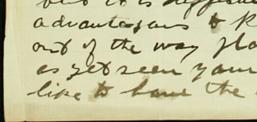 but it is
advantageous to k
out of the way pla
as yet seen your
like to have the